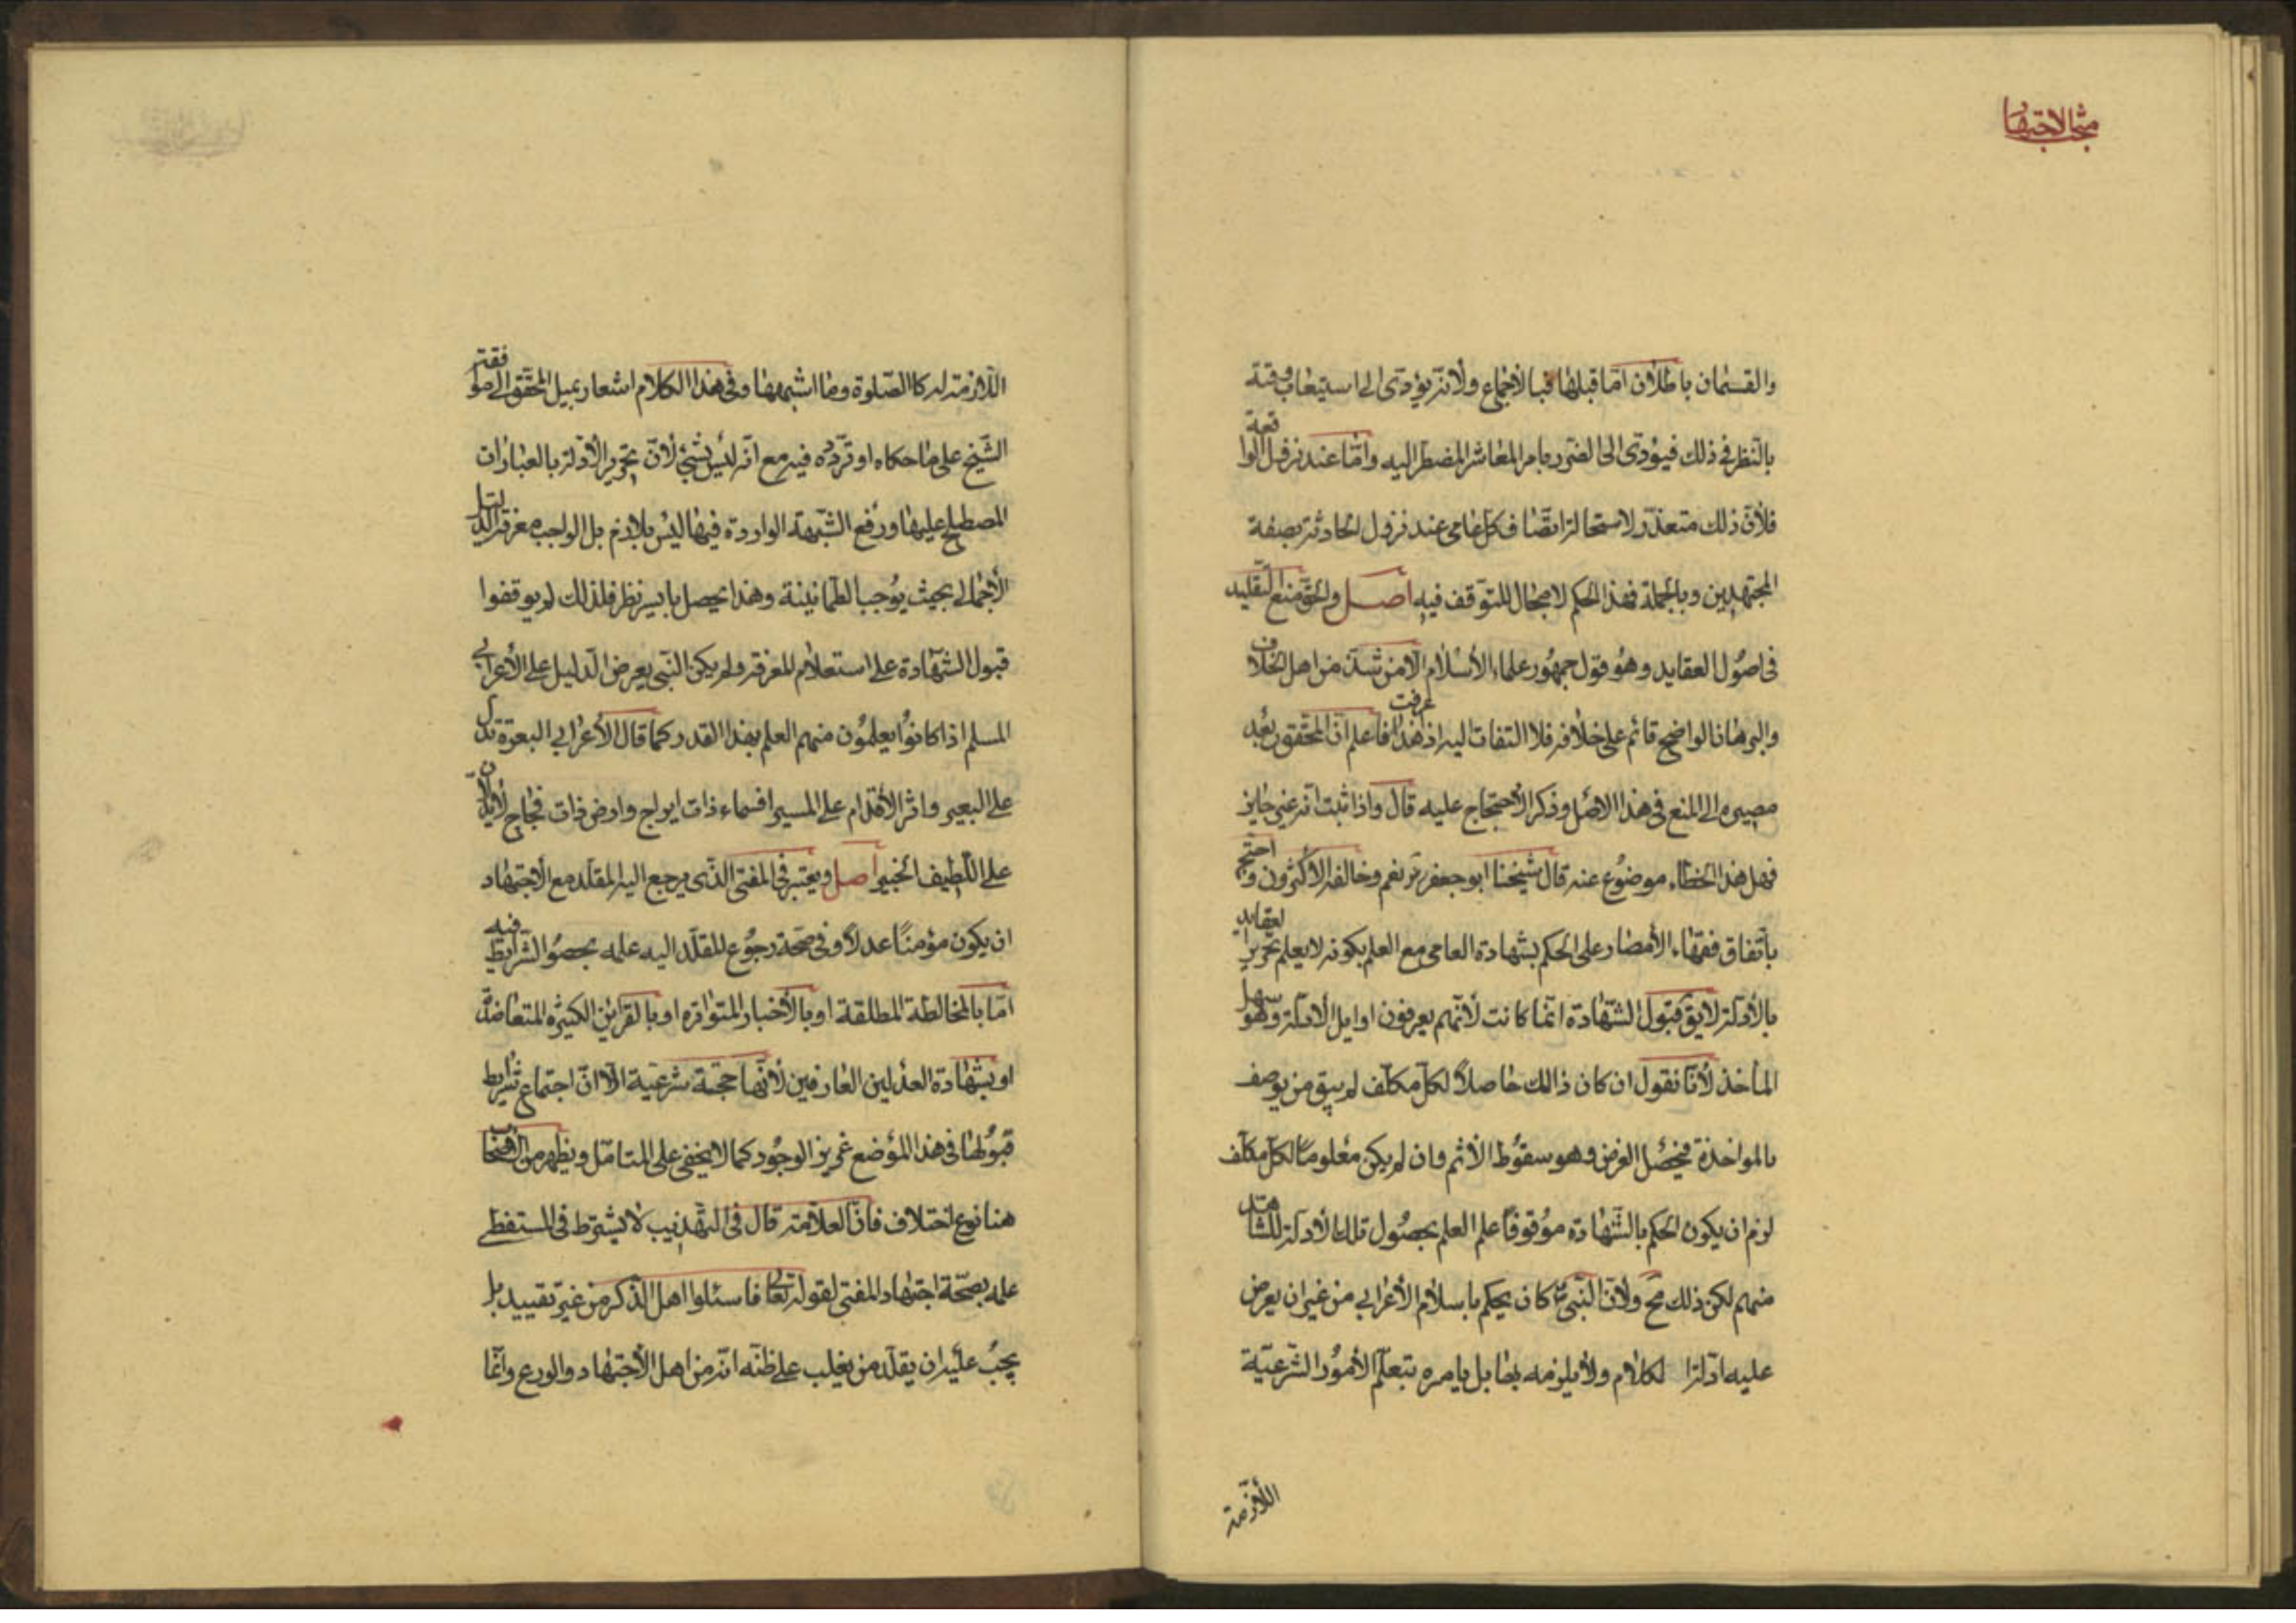 مبحث الاجتهاد
والقسمان باطلان امّا قبلها فبالاجماع ولانّه يؤدى الى استيعاب وقته
بالنظر في ذلك فيؤدى الى الضرر بامر المعاش المضطر اليه وامّا عند نزول الواقعة
فلانّ ذلك متعذّر لاستحالة اتّصاف كلّ عامى عند نزول الحادثة بصفة
المجتهدين وبالجملة فهذا الحكم لا مجال للتوقف فيه اصل والحق منع التقليد
فى اصُول العقايد وهو قول جمهُور علماء الأسلام الّا من شذّ من اهل الخلاف
والبرهان الواضح قائم على خلافه فلا التفات اليه اذا عرفت هذا فاعلم انّ المحقّق بعد
مصيره الى المنع فى هذا الاصل وذكر الاحتجاج عليه قال واذا ثبت انّه غير جايز
فهل هذا الخطاء موضُوع عنه قال شيخنا ابو جعفر ره نعم وخالفه الأكثرون واحتج
باتّفاق فقهاء الأمصار على الحكم بشهادة العامى مع العلم بكونه لا يعلم تحرير العقايد
بالأدلّة لا يق قبول الشهادة انّما كانت لأنّهم يعرفون اوايل الأدلّة وهو سهل
المأخذ لأنّا نقول ان كان ذالك حاصلاً لكلّ مكلّف لم يبق من يوصف
بالمواخذة فيحصُل الغرض وهو سقوُط الأثم وان لم يكن معْلوماً لكلّ مكلّف
لزم ان يكون الحكم بالشّهادة موْقوفاً على العلم بحصُول تلك الأدلّة للشاهد
منهم لكن ذلك مح ولأنّ النّبى ص كان يحكم باسلام الأعرابي من غير ان يعرض
عليه ادلّة الكلام ولا يلزمه بها بل يامره بتعلّم الأموُر الشّرعيّة
اللّازمة
اللّازمة له كالصّلوة وما اشبهها وفى هذا الكلام اشعار بميل المحقّق الى موافقة
الشّيخ على ما حكاه او تردّده فيه مع انّه ليس بشئ لأنّ تحرير الأدلّة بالعبارات
المصطلح عليها ورفع الشّبهة الواردة فيها ليس بلازم بل الواجب معرفة الدليل
الأجمالى بحيث يوُجب الطمانينة وهذا يحصل بايسر نظر فلذلك لم يوقفوا
قبول الشّهادة على استعلام المعرفة ولم يكن النّبى يعرض الدليل على الأعرابي
المسلم اذا كانوُا يعلموُن منهم العلم بهذا القدر كما قال الأعرابي البعرة تدل
على البعير واثر الأقدام على المسير افسماء ذات ابراج وارض ذات فجاج لا يدلّان
على اللّطيف الخبير اصل ويعتبر فى المفتى الّذى يرجع اليه المقلّد مع الأجتهاد
ان يكون مؤمناً عدلاً وفى صحّة رجوُع المقلّد اليه علمه بحصوُ الشّرايط فيه
امّا بالمخالطة المطلقة او بالأخبار المتوُاتره او بالقراين الكثيره المتعاضدة
او بشهادة العدلين العارفين لأنّها حجّة شرعية الّا انّ اجتماع شرايط
قبوُلها فى هذا الموْضع عزيز الوجُود كما لا يخفى على المتامّل ويظهر من الأصحاب
هنا نوع اختلاف فانّ العلّامة قال فى التّهذيب لا يشترط فى المستفتى
علمه بصحّة اجتهاد المفتى لقوله تعالى فاسئلوا اهل الذّكر من غير تقييد بل
يجبُ عليه ان يقلّد من يغلب على ظنّه انّه من اهل الأجتهاد والورع وانّما